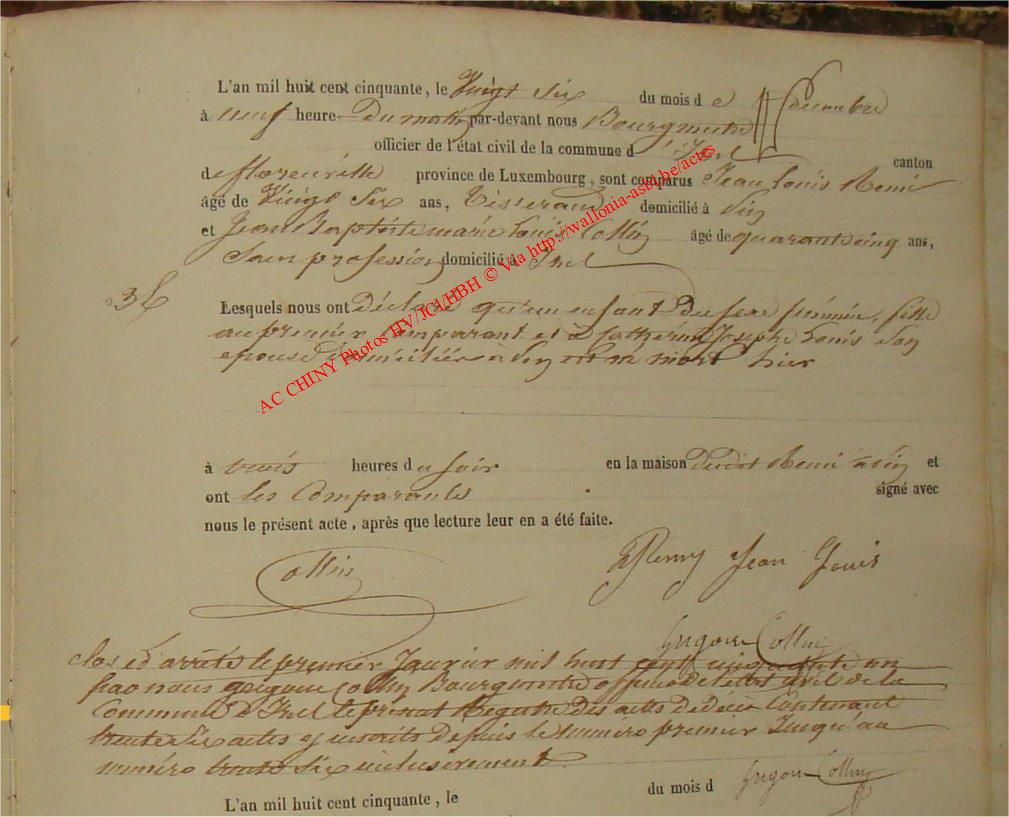 L'an mil huit cent cinquante, le Vingt Six du mois de Decembre
à neuf heure Du matin par-devant nous Bourgmestre
officier de l'état civil de la commune d'Izel canton
de florenville province de Luxembourg, sont comparus Jean Louis Remi
âgé de Vingt Six ans, Tisserand domicilié à
et Jean Baptiste marie Louis Collin âgé de quarant cinq ans,
Sans profession domicilié à Izel
36
Lesquels nous ont Déclaré qu'un enfant Du sexe féminin, fille
au premier comparant et à Catherine Josephe Louis Son
epouse domiciliée à mort hier
à trois heures du soir en la maison Dudit Remi à et
ont les Comparants signé avec
nous le présent acte, après que lecture leur en a été faite.
Collin Remy Jean Louis
Grégoire Collin
clos et arrêté le premier Janvier mil huit cent cinquante un
par nous Collin Bourgmestre officier de l'état civil de la
Commune D'Izel le présent Registre Des actes De Décès Contenant
trente Six actes y inscrits Depuis le numéro premier Jusqu'au
numéro trente Six inclusivement.
Grégoire Collin
L'an mil huit cent cinquante, le du mois d
AC CHINY Photos HV/JCI/HBH © Via http://wallonia-asbl.be/actes